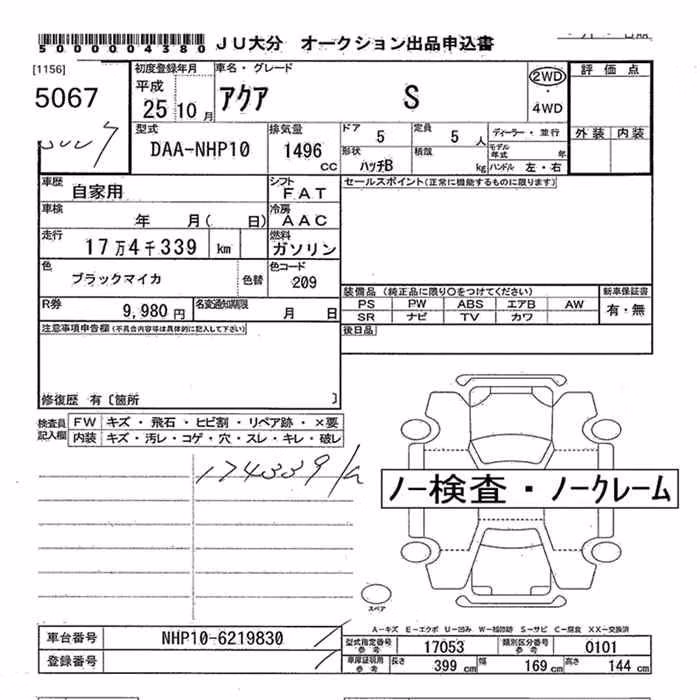 5000004380 JU大分 オークション出品申込書
[1156]
5067
初度登録年月
平成
25 10 月
車名・グレード
アクア S
2WD
・
4WD
評価点
外装 内装
型式
DAA-NHP10
排気量
1496 cc
ドア 5
定員 5 人
ディーラー・並行
形状 ハッチB
積哉 kg
モデル年式 年
ハンドル 左・右
車歴 自家用
シフト FAT
車検 年 月( 日)
冷房 AAC
走行 17万4千339 km
燃料 ガソリン
色 ブラックマイカ 色替
色コード 209
R券 9,980円
名変通知期限 月 日
セールスポイント(正常に機能するものに限ります)
装備品(純正品に限り○をつけてください)
PS PW ABS エアB AW
SR ナビ TV カワ
新車保証書
有・無
後日品
注意事項申告欄(不具合内容等は具体的に記入して下さい)
修復歴 有〔箇所 〕
検査員記入欄
FW キズ・飛石・ヒビ割・リペア跡・×要
内装 キズ・汚レ・コゲ・穴・スレ・キレ・破レ
174339/
ノー検査・ノークレーム
スペア
A-キズ E-エクボ U-凹み W-補修跡 S-サビ C-腐食 XX-交換済
車台番号 NHP10-6219830
登録番号
型式指定番号 参考 17053
類別区分番号 参考 0101
車庫証明用 参考 長さ 399 cm 幅 169 cm 高さ 144 cm